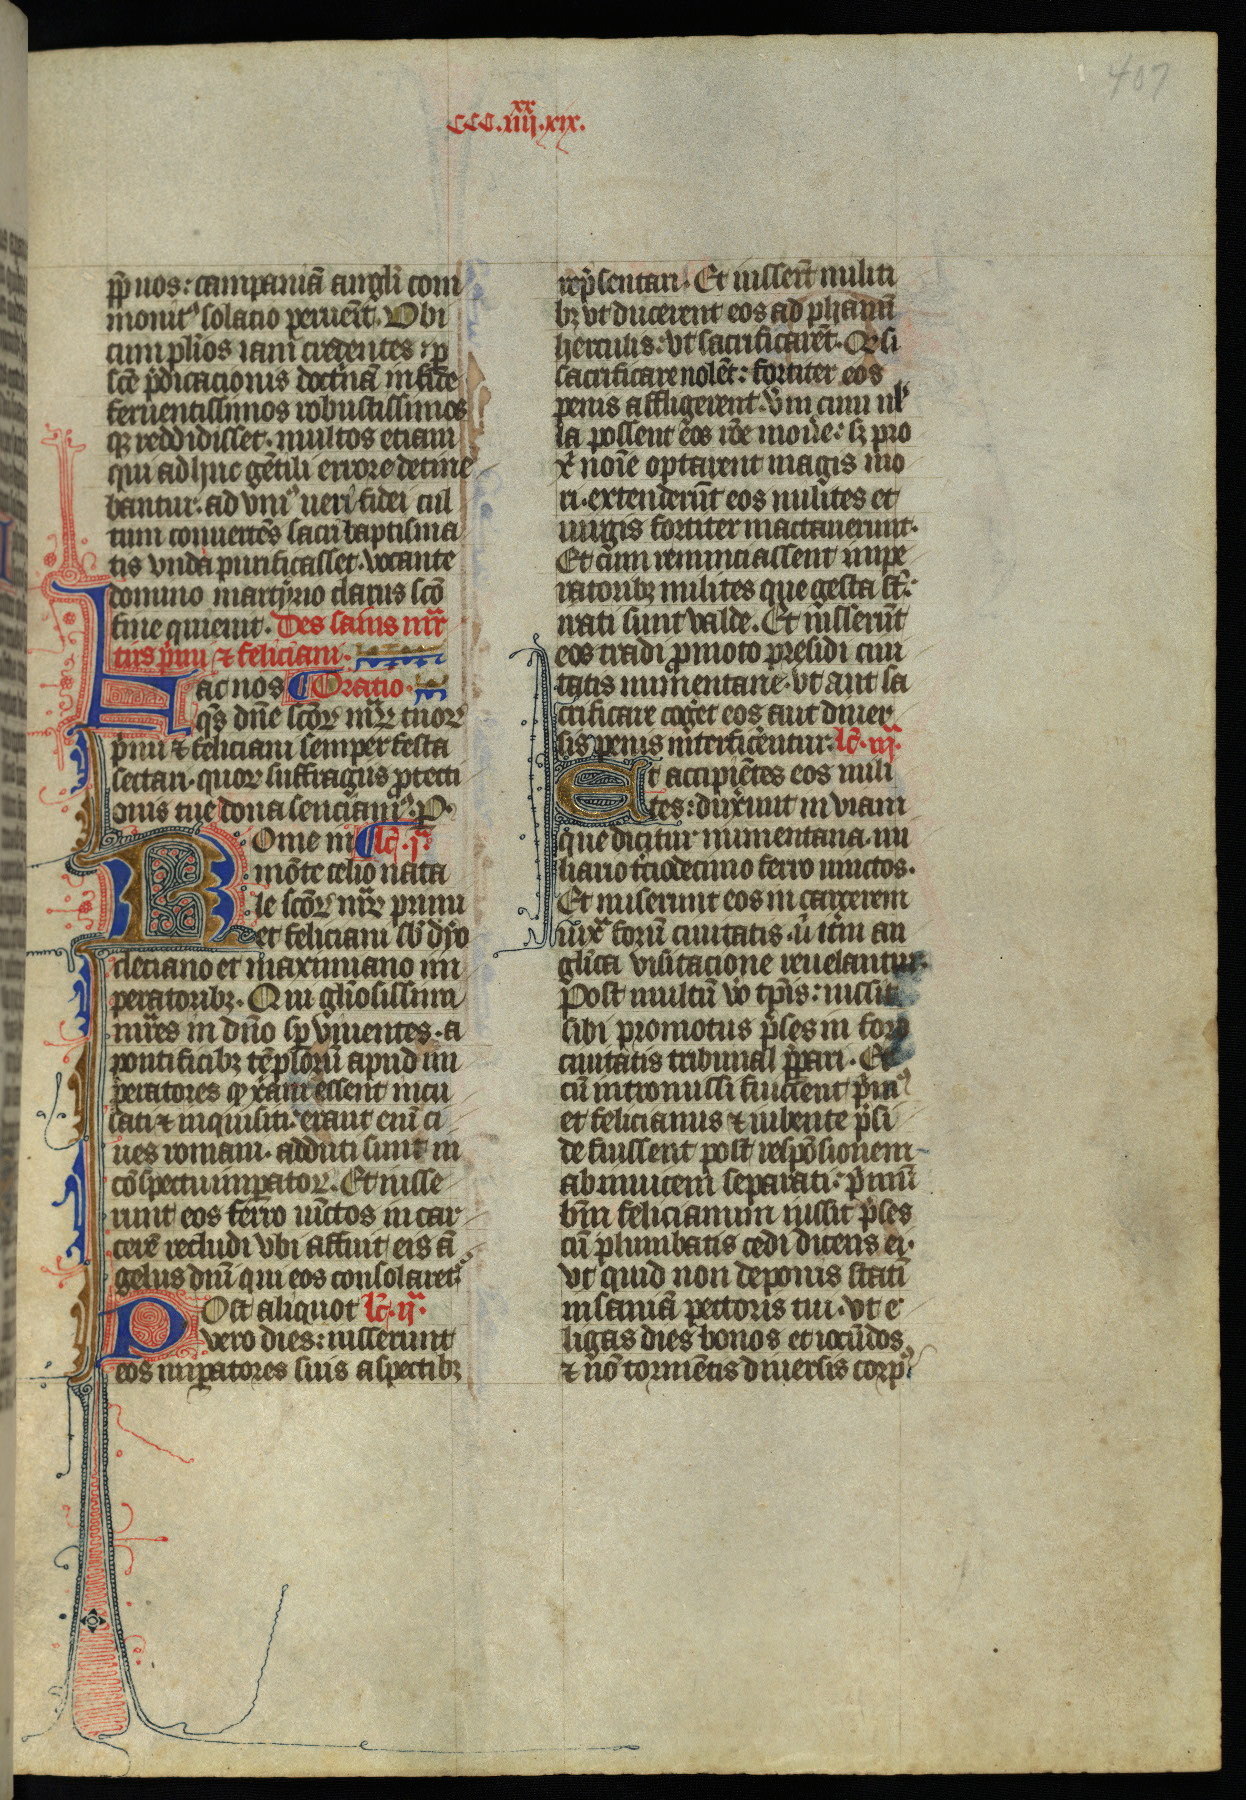 407
CCC.iiij.xx xix.
pp̄ uos: campaniā angl̉i com
monit⁹ solacio peruēit. Vbi
cum pl̉ios iam credentes ꝛ p̱
scē p̉dicacionis doctⁱnā in fide
feruentissimos robustissimos
qꝫ reddidisset. multos etiam
qui adhuc gētili errore detine
bantur. ad vni⁹ ueri fidei cul
tum conuertēs sacri baptisma
tis vnda purificasset. vocante
domino martyrio clarus scō
fine quieuit. Des sains mr̄
turs p̉mi ⁊ feliciani.
Fac nos Oratio.
qs̄ dn̄e scōꝝ mr̄ꝝ tuoꝝ
p̉mi ⁊ feliciani semper festa
sectari. quoꝝ suffragiis ꝓtecti
onis tue dona senciam⁹. P.
Rome in Lc̄. jᵃ.
mōte celio nata
le scōꝝ mr̄ꝝ primi
et feliciani sb̄ dyo
cleciano et maximiano im
peratoribꝫ. Qui gl̉iosissimi
mr̄es in dn̄o sꝑ viuentes. a
pontificibꝫ tēplorū apud im
peratores qꝫ xāni essent incu
sati ⁊ inquisiti: erant eni ci
ues romani. adducti sunt in
cōspectu imꝑatoꝝ. Et iusse
runt eos ferro uīctos in car
cerē recludi vbi affuit eis ā
gelus dn̄i qui eos consolaretᷣ.
Post aliquot Lc̄. ijᵃ.
vero dies: iusserunt
eos imꝑatores suis aspectibꝫ
rep̉sentari. Et iusser̄t militi
bꝫ vt ducerent eos ad phanū
herculis: vt sacrificarēt. Qꝫ si
sacrificare nolēt: fortiter eos
penis affligerent. Vn̄ cum nl̉
la possent eos rōe mouēe: sꝫ pro
xp̄i noīe optarent magis mo
ri. extenderūt eos milites et
uirgis fortiter mactauerunt.
Et cum renunciassent impe
ratoribꝫ milites que gesta st̄:
irati sunt valde. Et iusserūt
eos tradi ꝓmoto presidi ciui
tatis numentane. vt aut sa
crificare coget eos aut diuer
sis penis interficerentur. Lc̄. iijᵃ.
Et accipiētes eos mili
tes: duxerūt in viam
que dicitur numentana. mi
liario tꝰciodecimo ferro uinctos.
Et miserunt eos in carcerem
iuxᵃ forū ciuitatis. ū itm̄ an
gl̉ica visitacione reuelantur.
Post multū vo tp̄is: iussit
sibi promotus p̉ses in foro
ciuitatis tribunal p̉pari. Et
cū intromissi fuissent p̉m⁹
et felicianus ⁊ iubente p̉si
de fuissent post respōsionem
ab inuicem separati: p̉mū
bm̄ felicianum iussit p̉ses
cū plumbatis cedi dicens ei.
vt quid non deponis statī
insaniā pectoris tui. vt e
ligas dies bonos et iocūdos
⁊ nō tormētis diuersis corp⁹